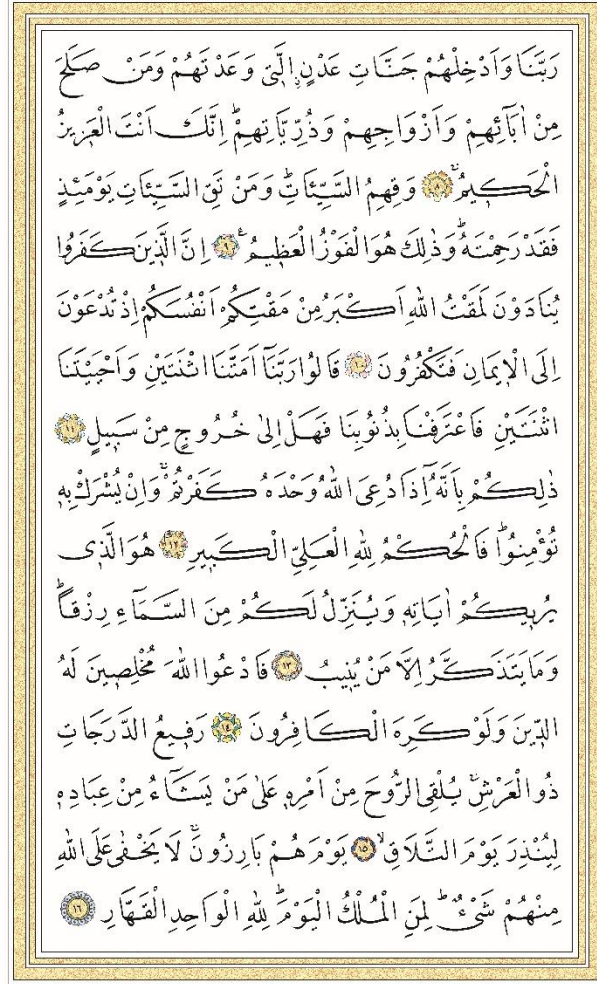 رَبَّنَا وَاَدْخِلْهُمْ جَنَّاتِ عَدْنٍۨ الَّتٖى وَعَدْتَهُمْ وَمَنْ صَلَحَ
مِنْ اٰبَٓائِهِمْ وَاَزْوَاجِهِمْ وَذُرِّيَّاتِهِمْؕ اِنَّكَ اَنْتَ الْعَزٖيزُ
الْحَكٖيمُۙ ﴿٨﴾ وَقِهِمُ السَّيِّـَٔاتِؕ وَمَنْ تَقِ السَّيِّـَٔاتِ يَوْمَئِذٍ
فَقَدْ رَحِمْتَهُؕ وَذٰلِكَ هُوَ الْفَوْزُ الْعَظٖيمُࣖ ﴿٩﴾ اِنَّ الَّذٖينَ كَفَرُوا
يُنَادَوْنَ لَمَقْتُ اللّٰهِ اَكْبَرُ مِنْ مَقْتِكُمْ اَنْفُسَكُمْ اِذْ تُدْعَوْنَ
اِلَى الْاٖيمَانِ فَتَكْفُرُونَ ﴿١٠﴾ قَالُوا رَبَّنَٓا اَمَتَّنَا اثْنَتَيْنِ وَاَحْيَيْتَنَا
اثْنَتَيْنِ فَاعْتَرَفْنَا بِذُنُوبِنَا فَهَلْ اِلٰى خُرُوجٍ مِنْ سَبٖيلٍ ﴿١١﴾
ذٰلِكُمْ بِاَنَّهُٓ اِذَا دُعِىَ اللّٰهُ وَحْدَهُ كَفَرْتُمْۚ وَاِنْ يُشْرَكْ بِهٖ
تُؤْمِنُواؕ فَالْحُكْمُ لِلّٰهِ الْعَلِىِّ الْكَبٖيرِ ﴿١٢﴾ هُوَ الَّذٖى
يُرٖيكُمْ اٰيَاتِهٖ وَيُنَزِّلُ لَكُمْ مِنَ السَّمَٓاءِ رِزْقًاؕ
وَمَا يَتَذَكَّرُ اِلَّا مَنْ يُنٖيبُ ﴿١٣﴾ فَادْعُوا اللّٰهَ مُخْلِصٖينَ لَهُ
الدّٖينَ وَلَوْ كَرِهَ الْكَافِرُونَ ﴿١٤﴾ رَفٖيعُ الدَّرَجَاتِ
ذُو الْعَرْشِۚ يُلْقِى الرُّوحَ مِنْ اَمْرِهٖ عَلٰى مَنْ يَشَٓاءُ مِنْ عِبَادِهٖ
لِيُنْذِرَ يَوْمَ التَّلَاقِۙ ﴿١٥﴾ يَوْمَ هُمْ بَارِزُونَۚ لَا يَخْفٰى عَلَى اللّٰهِ
مِنْهُمْ شَىْءٌؕ لِمَنِ الْمُلْكُ الْيَوْمَؕ لِلّٰهِ الْوَاحِدِ الْقَهَّارِ ﴿١٦﴾